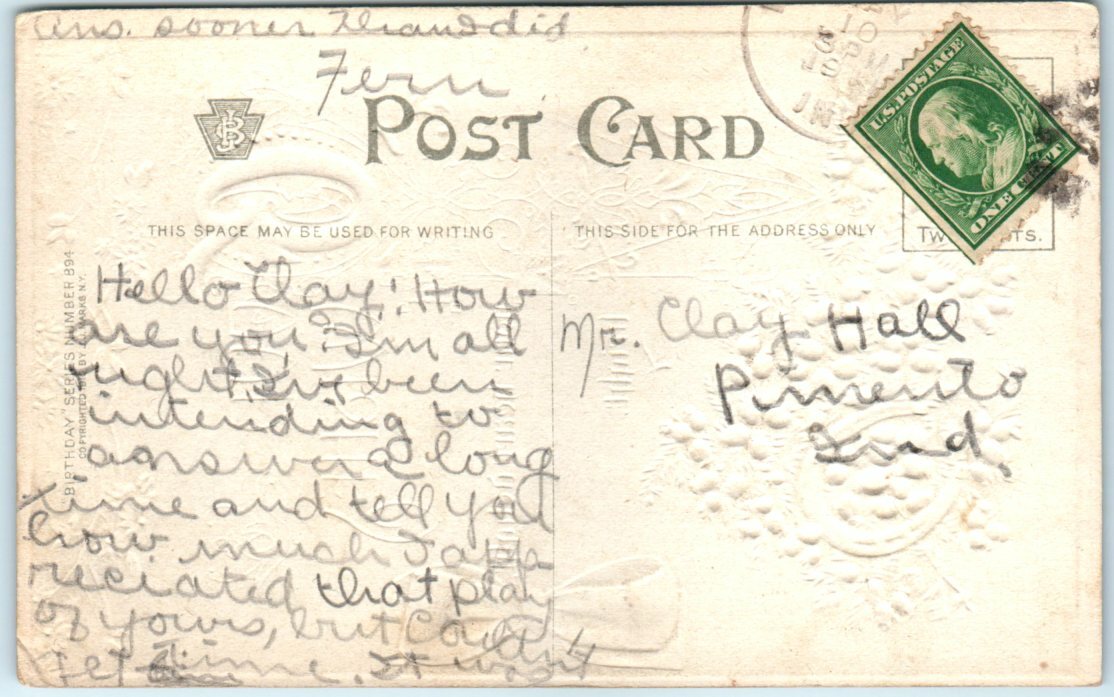 ans. sooner than I did
Fern
POST CARD
THIS SPACE MAY BE USED FOR WRITING
THIS SIDE FOR THE ADDRESS ONLY
U.S. POSTAGE
ONE CENT
"BIRTHDAY" SERIES NUMBER 894
COPYRIGHTED BY J. MARKS N.Y.
Hello Clay! How
are you? I'm all
right, I've been
intending to
answer a long
time and tell you
how much I app
reciated that play
of yours, but couldn't
get time. It won't
Mr. Clay Hall
Pimento
Ind.